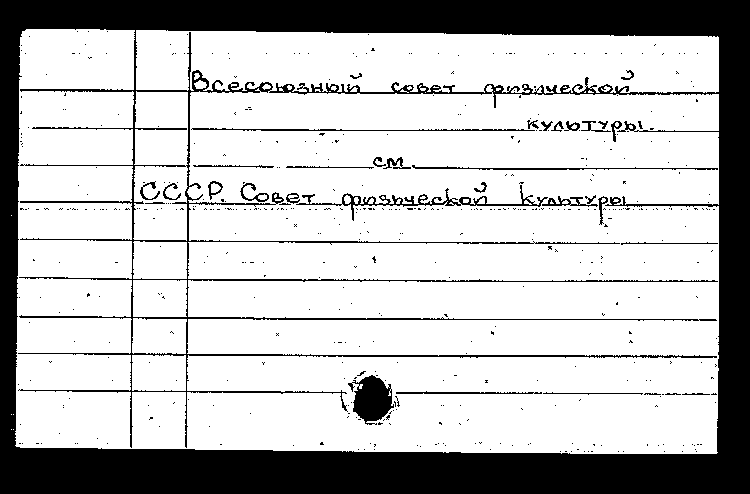 Всесоюзный совет физической
культуры.
см.
СССР. Совет физической культуры